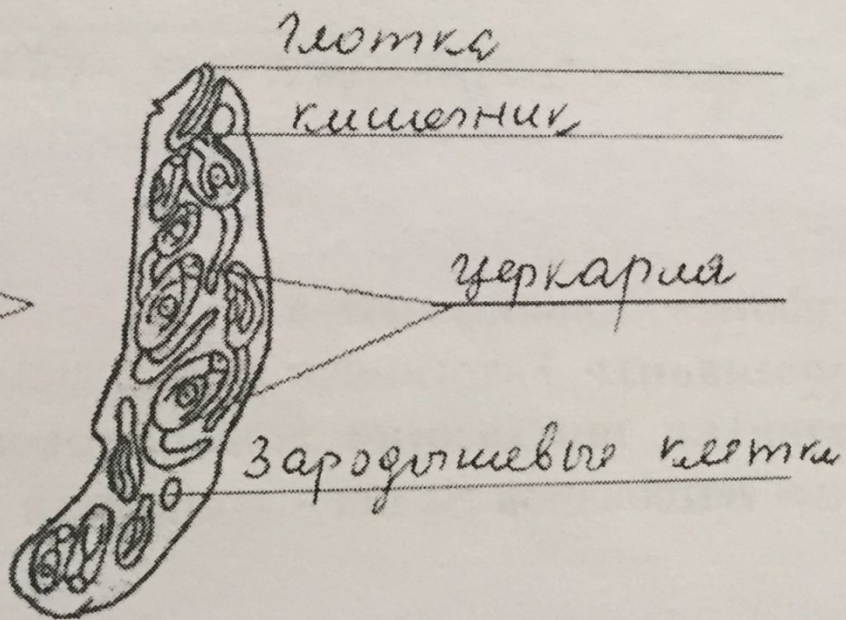 Глотка
кишечник
церкария
Зародышевые клетки